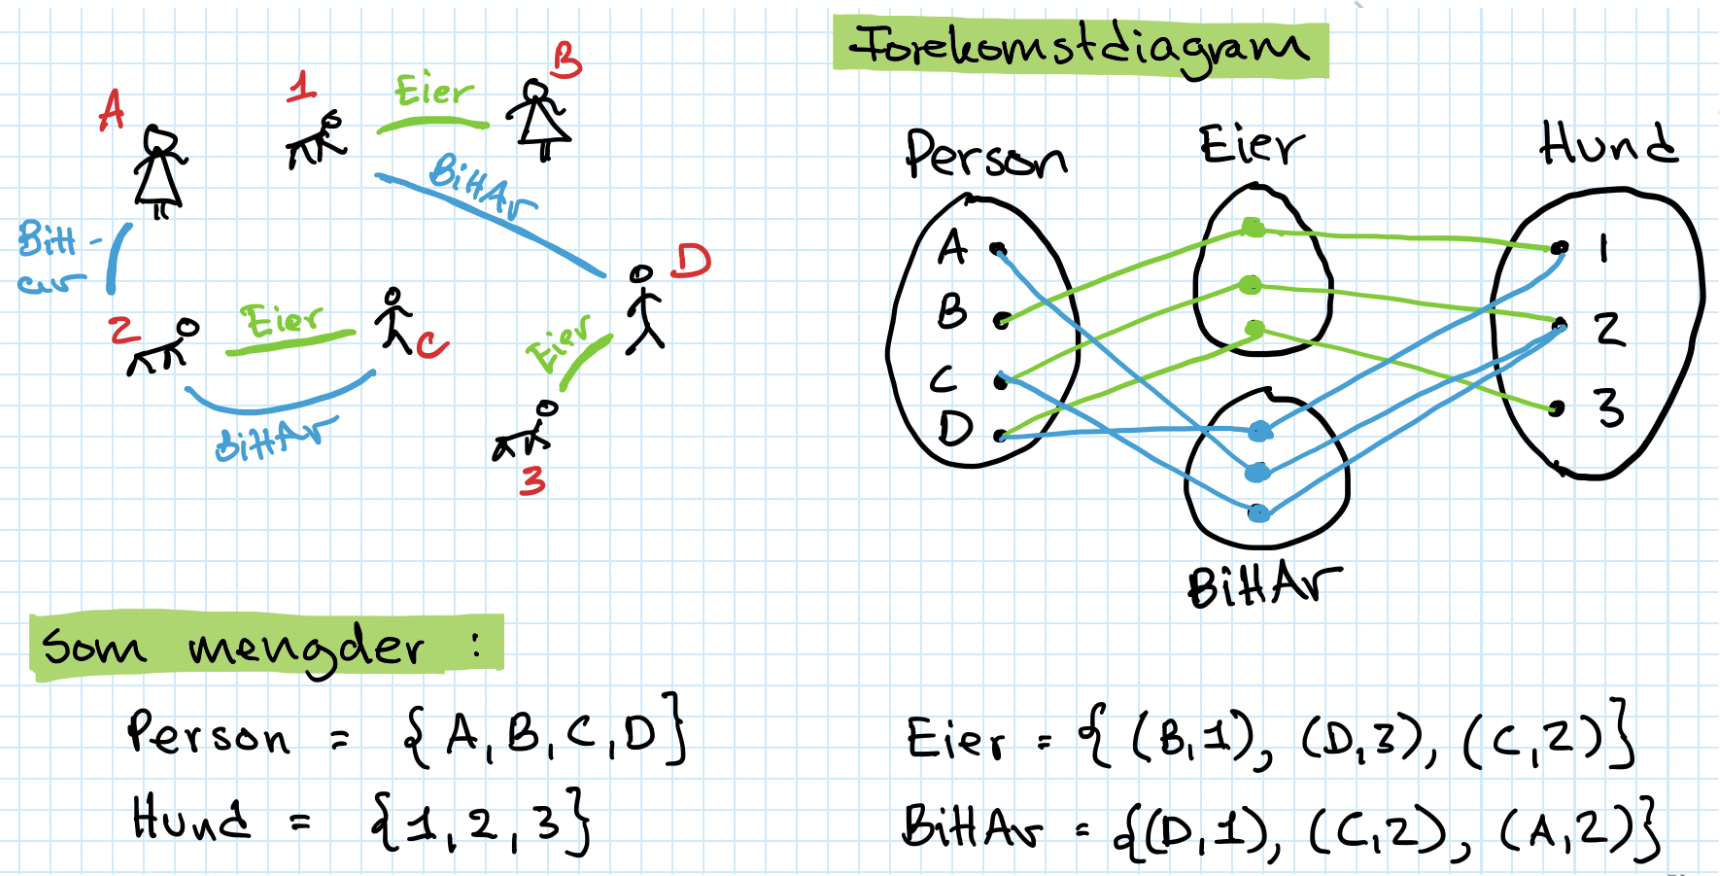 A
1
Eier
B
BittAv
D
Bitt-
av
2
Eier
C
Eier
BittAv
3
Forekomstdiagram
Person
Eier
Hund
A
B
C
D
1
2
3
BittAv
Som mengder :
Person = {A, B, C, D}
Hund = {1, 2, 3}
Eier = {(B,1), (D,3), (C,2)}
BittAv = {(D,1), (C,2), (A,2)}